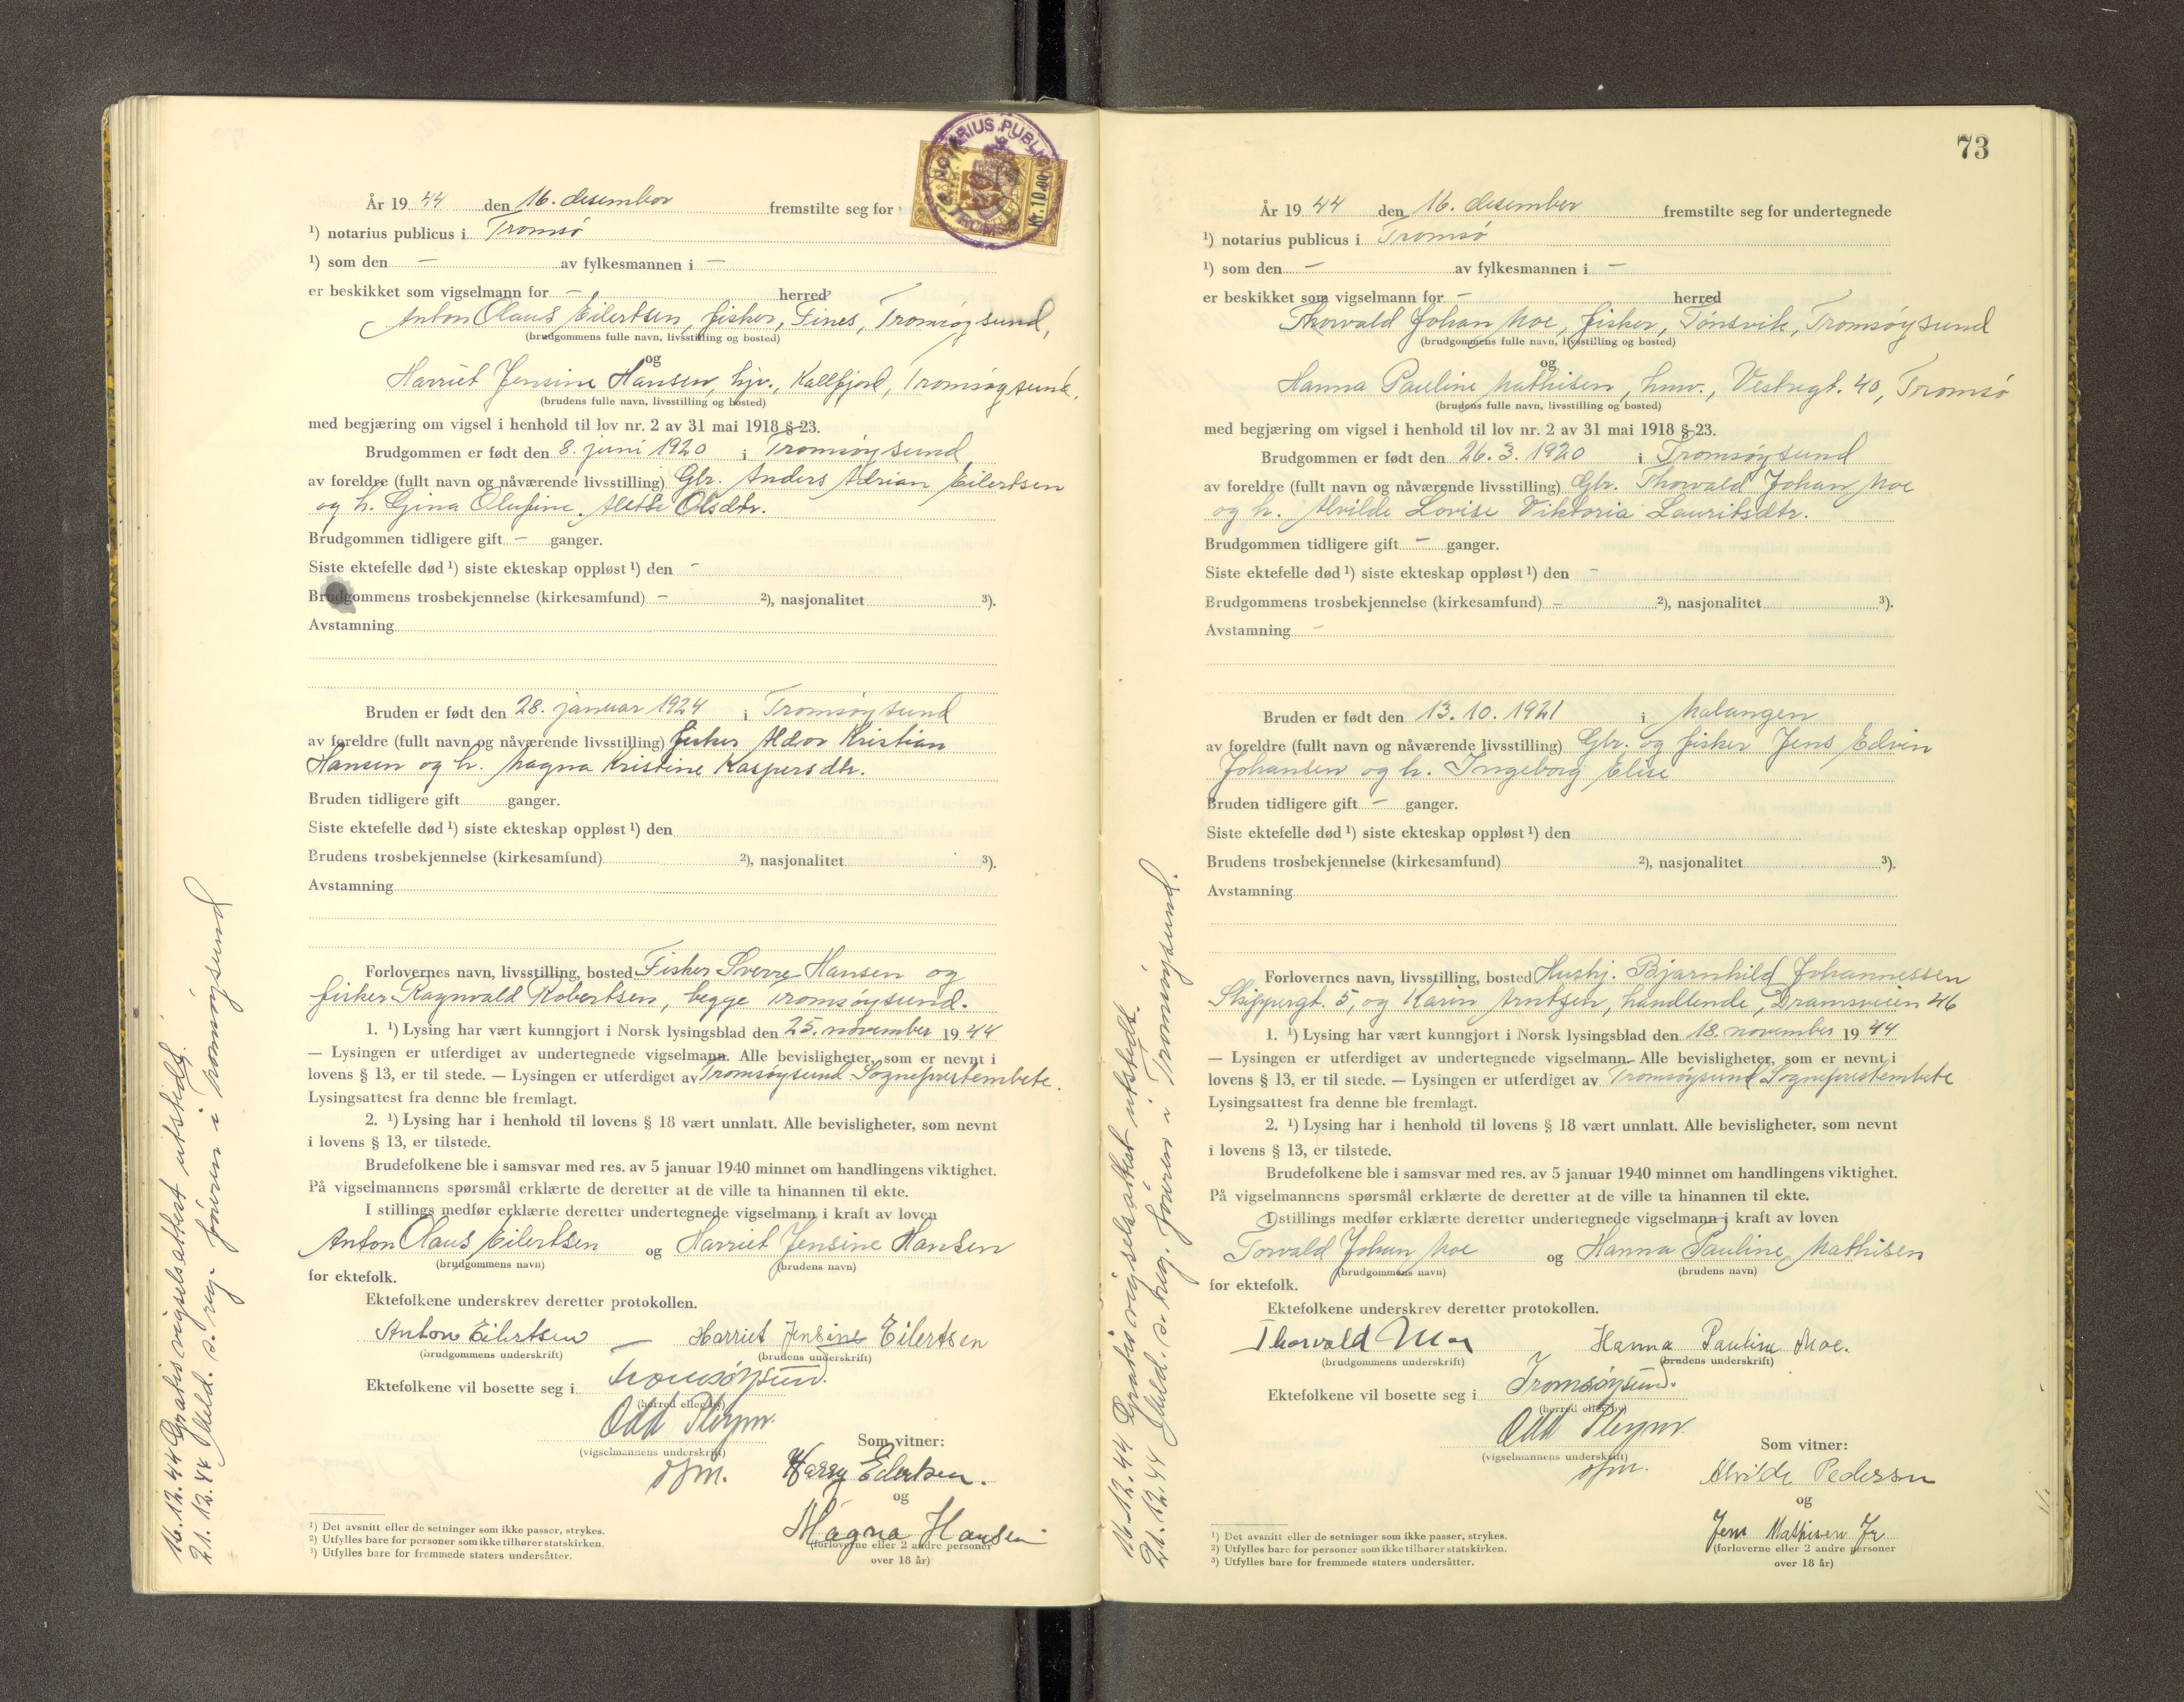 NOTARIUS PUBLIC
TROMSØ
Kr. 10.00
År 19 44 den 16. desember fremstilte seg for
¹) notarius publicus i Tromsø
¹) som den – av fylkesmannen i –
er beskikket som vigselmann for – herred
Anton Olaus Eilertsen, fisker, Fines, Tromsøysund,
(brudgommens fulle navn, livsstilling og bosted)
og
Harriet Jensine Hansen, hjv., Kallfjord, Tromsøysund.
(brudens fulle navn, livsstilling og bosted)
med begjæring om vigsel i henhold til lov nr. 2 av 31 mai 1918 § 23.
Brudgommen er født den 8. juni 1920 i Tromsøysund
av foreldre (fullt navn og nåværende livsstilling) Gbr. Anders Adrian Eilertsen
og h. Gina Olufine Alette Olsdtr.
Brudgommen tidligere gift – ganger.
Siste ektefelle død ¹) siste ekteskap oppløst ¹) den –
Brudgommens trosbekjennelse (kirkesamfund) – ²), nasjonalitet ³).
Avstamning
Bruden er født den 28. januar 1924 i Tromsøysund
av foreldre (fullt navn og nåværende livsstilling) fisker Aldor Kristian
Hansen og h. Magna Kristine Kaspersdtr.
Bruden tidligere gift ganger.
Siste ektefelle død ¹) siste ekteskap oppløst ¹) den
Brudens trosbekjennelse (kirkesamfund) ²), nasjonalitet ³).
Avstamning
Forlovernes navn, livsstilling, bosted Fisker Sverre Hansen og
fisker Ragnvald Robertsen, begge Tromsøysund.
1. ¹) Lysing har vært kunngjort i Norsk lysingsblad den 25. november 19 44
— Lysingen er utferdiget av undertegnede vigselmann. Alle bevisligheter, som er nevnt i
lovens § 13, er til stede. — Lysingen er utferdiget av Tromsøysund Sogneprestembete.
Lysingsattest fra denne ble fremlagt.
2. ¹) Lysing har i henhold til lovens § 18 vært unnlatt. Alle bevisligheter, som nevnt
i lovens § 13, er tilstede.
Brudefolkene ble i samsvar med res. av 5 januar 1940 minnet om handlingens viktighet.
På vigselmannens spørsmål erklærte de deretter at de ville ta hinannen til ekte.
I stillings medfør erklærte deretter undertegnede vigselmann i kraft av loven
Anton Olaus Eilertsen og Harriet Jensine Hansen
(brudgommens navn) (brudens navn)
for ektefolk.
Ektefolkene underskrev deretter protokollen.
Anton Eilertsen — Harriet Jensine Eilertsen
(brudgommens underskrift) (brudens underskrift)
Ektefolkene vil bosette seg i Tromsøysund.
(herred eller by)
Odd
(vigselmannens underskrift)
Som vitner:
Harry Eilertsen.
og
Magna Hansen
(forloverne eller 2 andre personer
over 18 år)
¹) Det avsnitt eller de setninger som ikke passer, strykes.
²) Utfylles bare for personer som ikke tilhører statskirken.
³) Utfylles bare for fremmede staters undersåtter.
16.12.44 Gratis vigselsattest utstedt.
21.12.44 Meld. s. reg. føreren i Tromsøysund
73
År 19 44 den 16. desember fremstilte seg for undertegnede
¹) notarius publicus i Tromsø
¹) som den – av fylkesmannen i –
er beskikket som vigselmann for – herred
Thorvald Johan Moe, fisker, Tønsvik, Tromsøysund
(brudgommens fulle navn, livsstilling og bosted)
og
Hanna Pauline Mathisen, hmv., Vestregt. 40, Tromsø
(brudens fulle navn, livsstilling og bosted)
med begjæring om vigsel i henhold til lov nr. 2 av 31 mai 1918 § 23.
Brudgommen er født den 26. 3. 1920 i Tromsøysund
av foreldre (fullt navn og nåværende livsstilling) Gbr. Thorvald Johan Moe
og h. Alvilde Lovise Viktoria Lauritsdtr.
Brudgommen tidligere gift – ganger.
Siste ektefelle død ¹) siste ekteskap oppløst ¹) den –
Brudgommens trosbekjennelse (kirkesamfund) – ²), nasjonalitet ³).
Avstamning –
Bruden er født den 13. 10. 1921 i Malangen
av foreldre (fullt navn og nåværende livsstilling) Gbr. og fisker Jens Edvin
Johansen og h. Ingeborg Elise
Bruden tidligere gift – ganger.
Siste ektefelle død ¹) siste ekteskap oppløst ¹) den
Brudens trosbekjennelse (kirkesamfund) ²), nasjonalitet ³).
Avstamning
Forlovernes navn, livsstilling, bosted Hushj. Bjarnhild Johannessen
Skippergt. 5, og Karin Arntsen, handlende, Dramsveien 46
1. ¹) Lysing har vært kunngjort i Norsk lysingsblad den 18. november 19 44
— Lysingen er utferdiget av undertegnede vigselmann. Alle bevisligheter, som er nevnt i
lovens § 13, er til stede. — Lysingen er utferdiget av Tromsøysund Sogneprestembete
Lysingsattest fra denne ble fremlagt.
2. ¹) Lysing har i henhold til lovens § 18 vært unnlatt. Alle bevisligheter, som nevnt
i lovens § 13, er tilstede.
Brudefolkene ble i samsvar med res. av 5 januar 1940 minnet om handlingens viktighet.
På vigselmannens spørsmål erklærte de deretter at de ville ta hinannen til ekte.
I stillings medfør erklærte deretter undertegnede vigselmann i kraft av loven
Torvald Johan Moe og Hanna Pauline Mathisen
(brudgommens navn) (brudens navn)
for ektefolk.
Ektefolkene underskrev deretter protokollen.
Thorvald Moe Hanna Pauline Moe.
(brudgommens underskrift) (brudens underskrift)
Ektefolkene vil bosette seg i Tromsøysund.
(herred eller by)
Odd
(vigselmannens underskrift)
Som vitner:
Alvilde Pedersen
og
Jens Mathisen Jr
(forloverne eller 2 andre personer
over 18 år)
¹) Det avsnitt eller de setninger som ikke passer, strykes.
²) Utfylles bare for personer som ikke tilhører statskirken.
³) Utfylles bare for fremmede staters undersåtter.
16.12.44 Gratis vigselsattest utstedt.
21.12.44 Meld. s. reg. føreren i Tromsøysund.